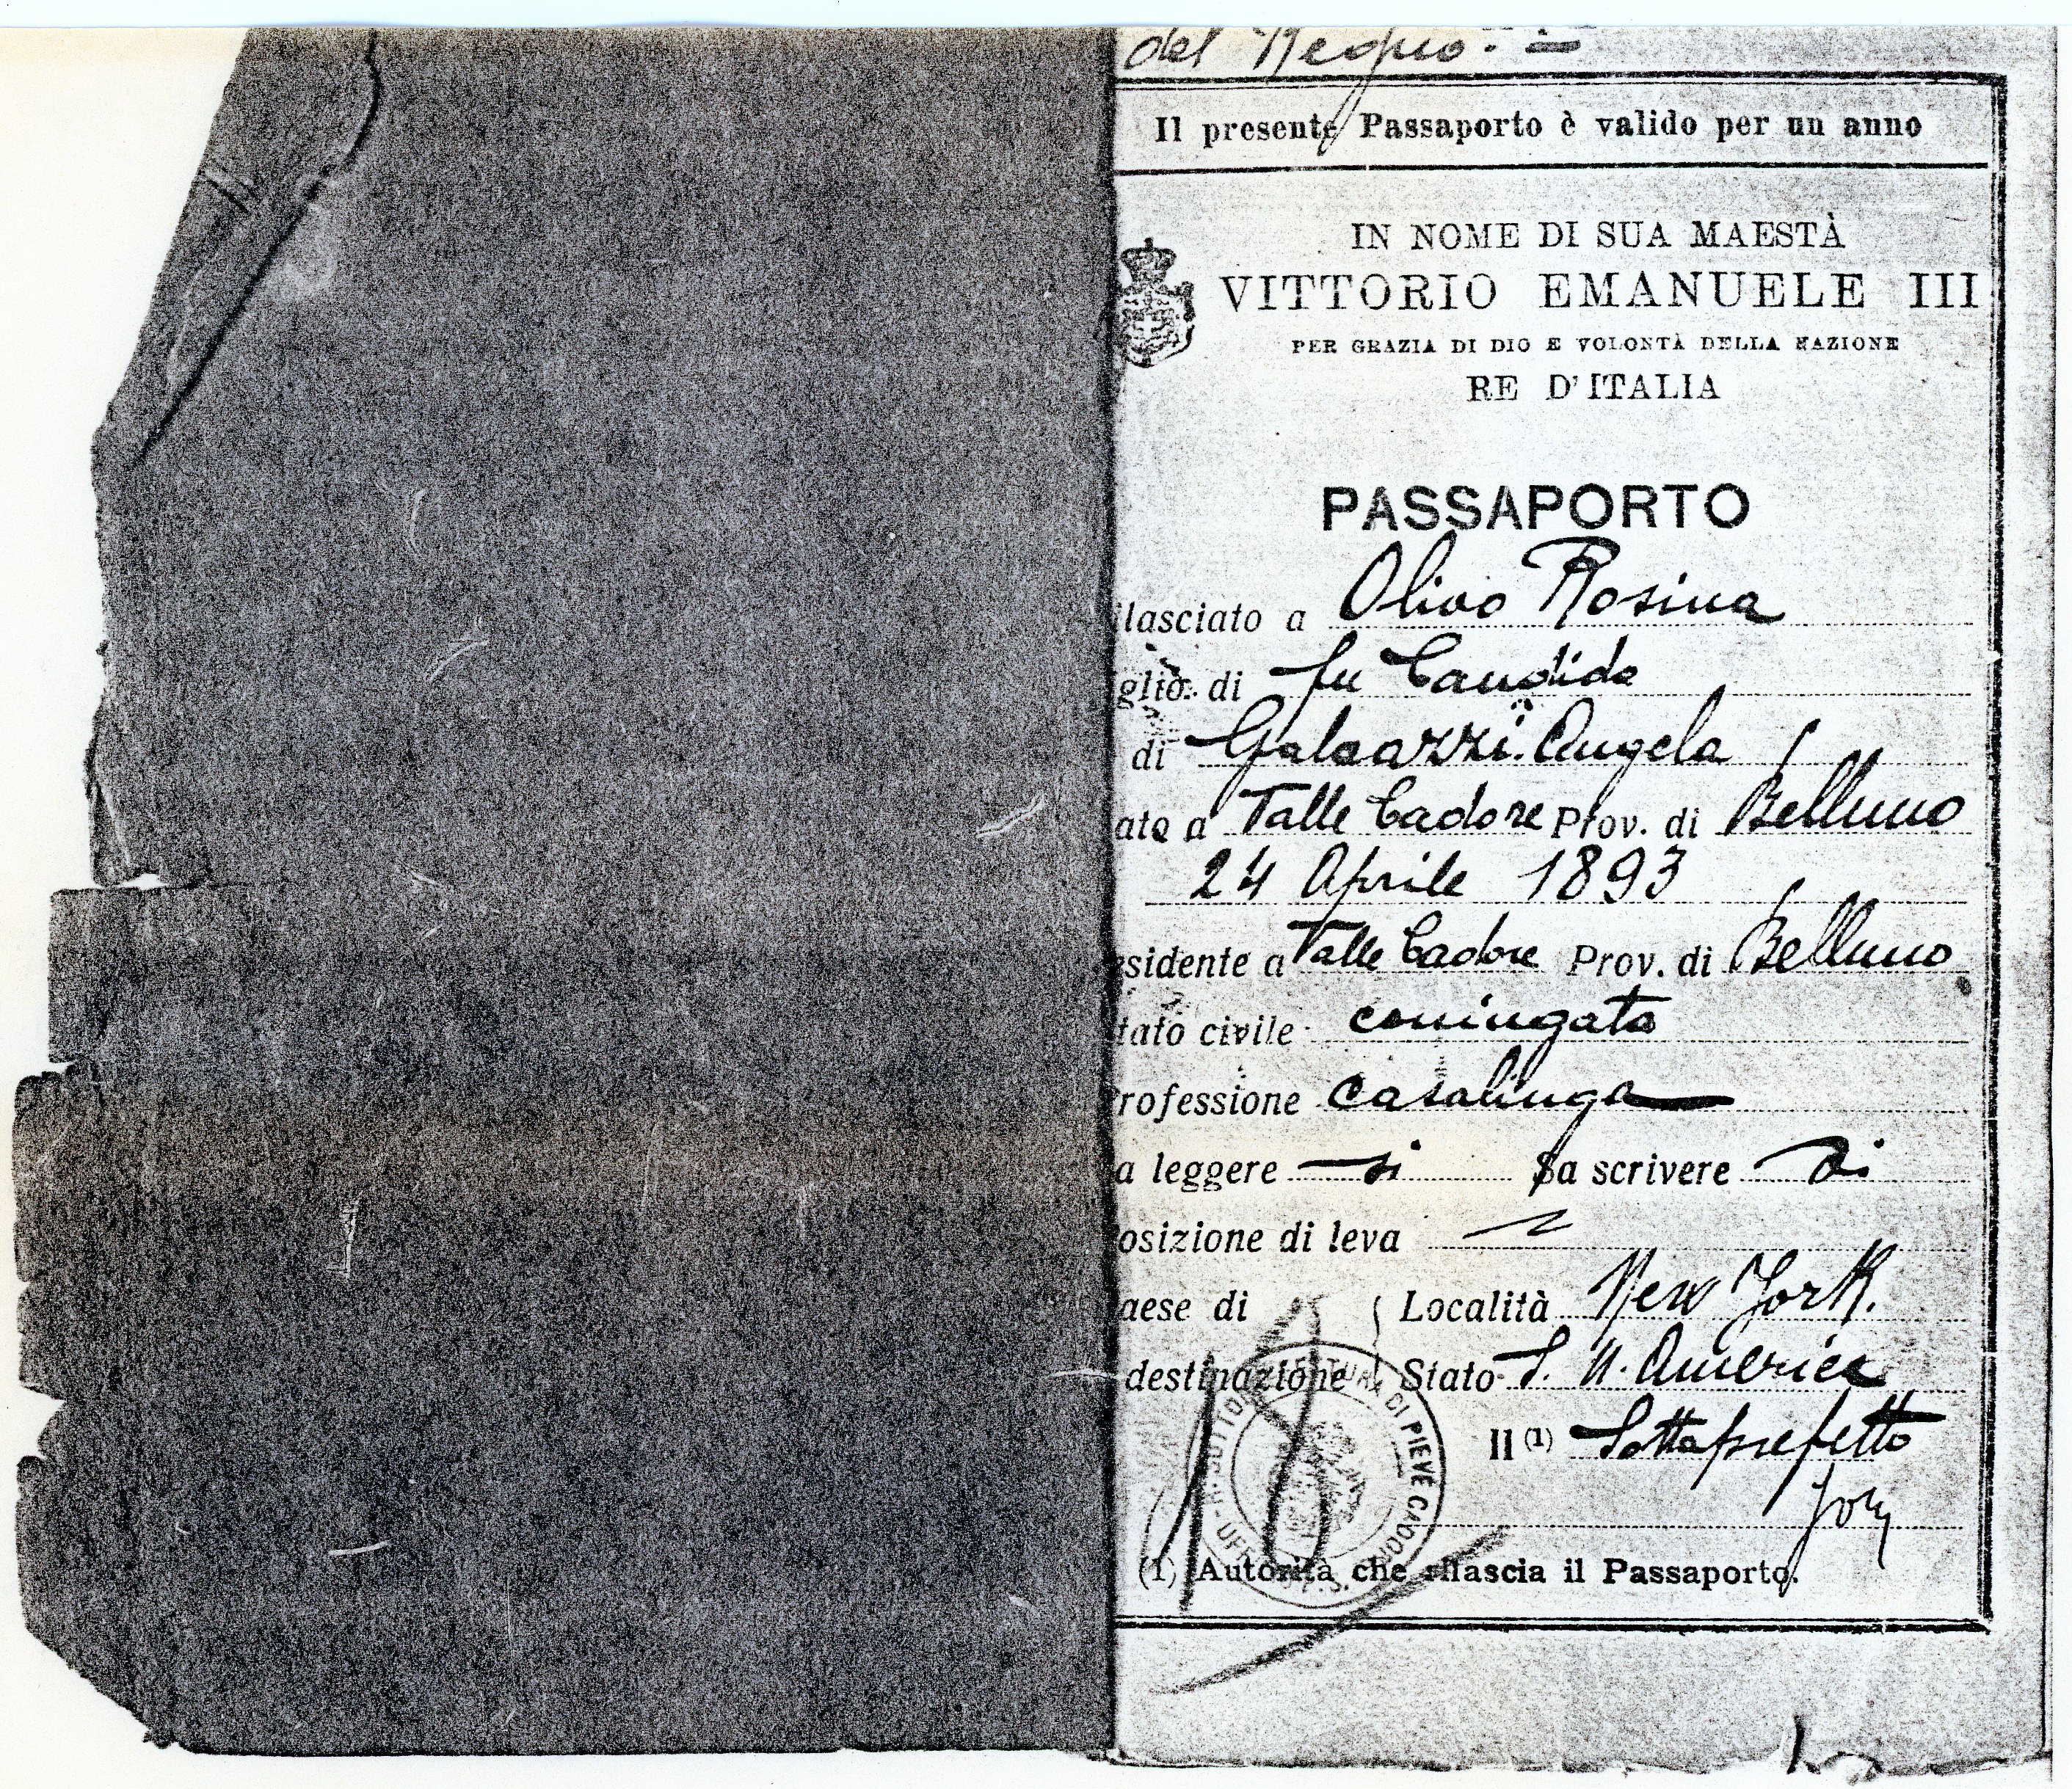 del Regno. =
Il presente Passaporto è valido per un anno
IN NOME DI SUA MAESTÀ
VITTORIO EMANUELE III
PER GRAZIA DI DIO E VOLONTÀ DELLA NAZIONE
RE D'ITALIA
PASSAPORTO
ilasciato a Olivo Rosina
glio di fu Candido
di Galeazzi Angela
ato a Valle Cadore Prov. di Belluno
24 Aprile 1893
sidente a Valle Cadore Prov. di Belluno
tato civile coniugata
rofessione casalinga
a leggere si Sa scrivere si
osizione di leva
aese di Località New York.
destinazione Stato S. U. America
Il (1) Sottoprefetto
(1) Autorità che rilascia il Passaporto.